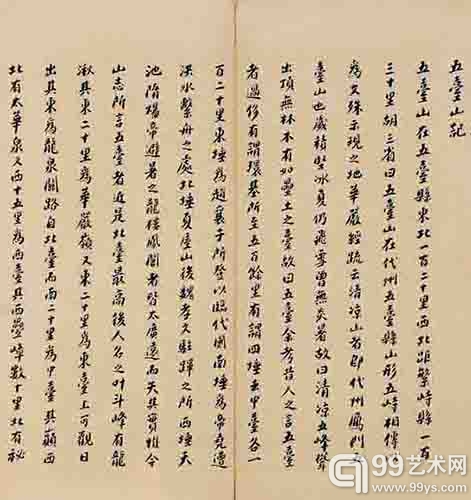 五臺山記
五臺山在五臺縣東北一百二十里西北距繁峙縣一百
三十里胡三省曰五臺山在代州五臺縣山形五峙相傳以
為文殊示現之地華嚴經疏云清凉山者即代州鴈門五
臺山也歲積堅冰夏仍飛雪曾無炎暑故曰清凉五峰聳
出頂無林木有如壘土之臺故曰五臺余考昔人之言五臺
者過侈有謂環基所至五百餘里有謂四埵去中臺各一
百二十里東埵為趙襄子所登以臨代國南埵為帝堯遭
洪水繫舟之處北埵夏屋山後魏孝文駐蹕之所西埵天
池隋煬帝避暑之龍樓鳳閣者皆太廣遠而失其實惟今
山志所言五臺者近是北臺最高後人名之叶斗峰有龍
湫其東二十里為華嚴嶺又東二十里為東臺上可觀日
出其東為龍泉關路自北臺而南二十里為中臺其巔西
北有太華泉又西十五里為西臺其西疊嶂數十里北有祕
99艺术网
www.99ys.com